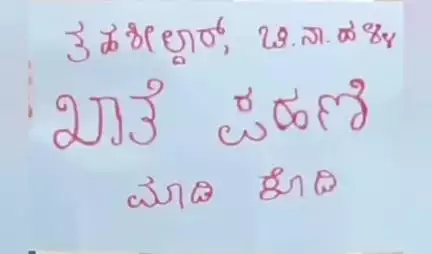 ತಹಶೀಲ್ದಾರ್, ಚಿ.ನಾ.ಹಳ್ಳಿ
ಖಾತೆ ಪಹಣಿ
ಮಾಡಿ ಕೊಡಿ